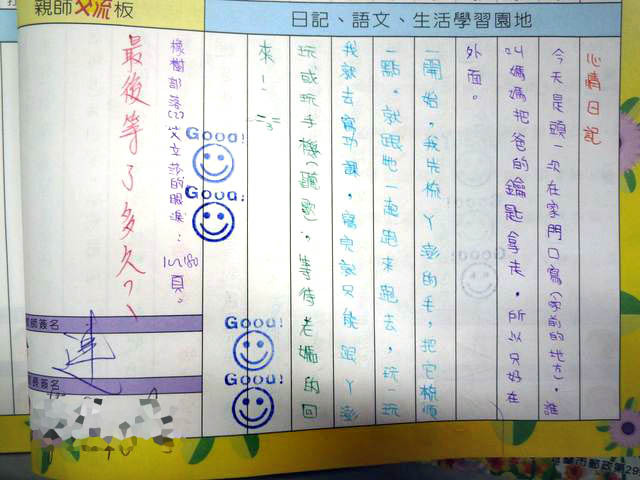 親師交流板
日記、語文、生活學習園地
心情日記
今天是頭一次在家門口寫(家前的地方)，誰
叫媽媽把爸的鑰匙拿走，所以只好在
外面。
一開始，我先梳丫澎的毛，把它梳順
一點。就跟牠一直跑來跑去，玩一玩
我就去寫功課，寫完就只能跟丫澎
玩或玩手機(聽歌)，等待老媽的回
來！
橡樹部落(2)艾立莎的眼淚：1~180頁。
最後等了多久?
Good!
Good!
Good!
Good!
師簽名
長簽名
市郵政第29